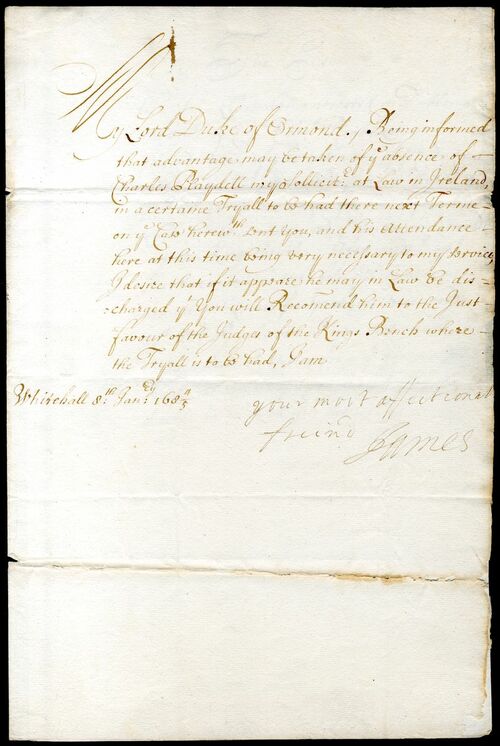 My Lord Duke of Ormond, Being informed
that advantage may be taken of yͤ absence of
Charles Playdell my Sollicitͬ at Law in Ireland,
in a certaine Tryall to be had there next Terme
on yͤ Case herewᵗʰ sent you, and his attendance
here at this time being very necessary to my service,
I desire that if it appeare he may in Law be dis-
charged yͭ You will Recomend him to the Just
favour of the Judges of the Kings Bench where
the Tryall is to be had, I am
Whitehall 8ᵗʰ Janʳʸ 168¾
your most affectionat
freind James